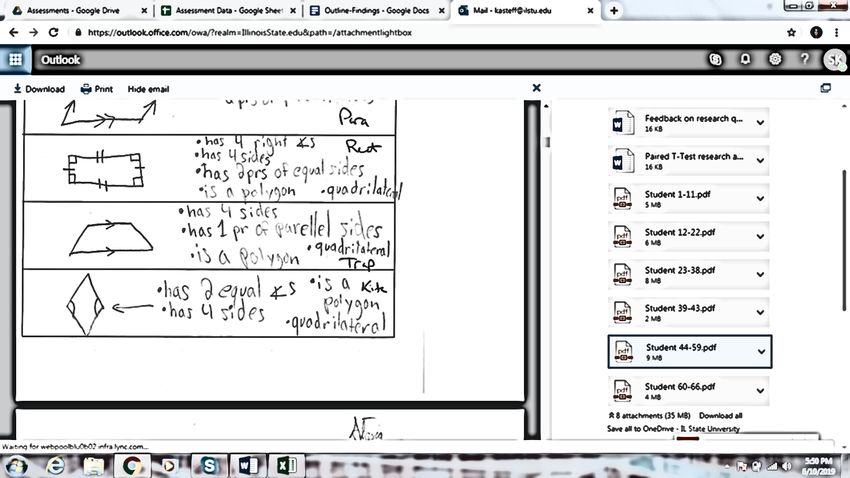 Assessments - Google Drive
Assessment Data - Google Sheet
Outline-Findings - Google Docs
Mail - kasteff@ilstu.edu
https://outlook.office.com/owa/?realm=IllinoisState.edu&path=/attachmentlightbox
Outlook
Download
Print
Hide email
Para
•has 4 right ∡s
Rect
•has 4 sides
•has 2 prs of equal sides
•is a polygon •quadrilateral
•has 4 sides
•has 1 pr of parellel sides
•quadrilateral
•is a polygon
Trap
•has 2 equal ∡s •is a Kite
polygon
•has 4 sides
•quadrilateral
Feedback on research q...
16 KB
Paired T-Test research a...
16 KB
Student 1-11.pdf
5 MB
Student 12-22.pdf
6 MB
Student 23-38.pdf
8 MB
Student 39-43.pdf
2 MB
Student 44-59.pdf
9 MB
Student 60-66.pdf
4 MB
8 attachments (35 MB) Download all
Save all to OneDrive - IL State University
5:50 PM
6/10/2019